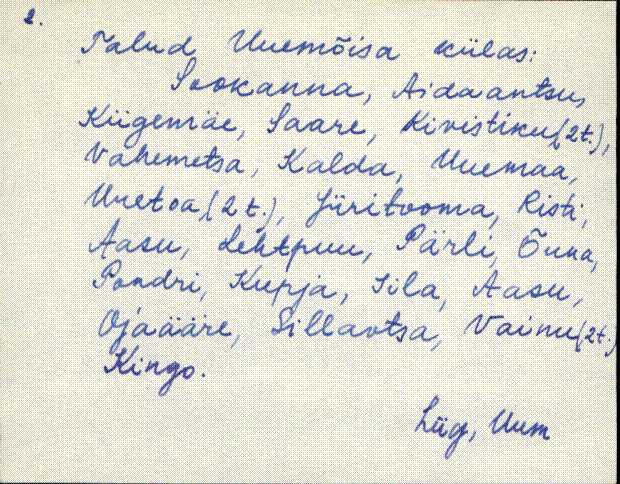 2.
Talud Uuemõisa külas:
Sookanna, Aidaantsu,
Kiigemäe, Saare, Kivistiku(2t.),
Vahemetsa, Kalda, Uuemaa,
Uuetoa,(2t.), Jüritooma, Risti,
Aasu, Lehtpuu, Pärli, Õuna,
Pondri, Kupja, Sila, Aasu,
Ojaääre, Sillaotsa, Vainu(2t.)
Kingo.
Lüg, Uum